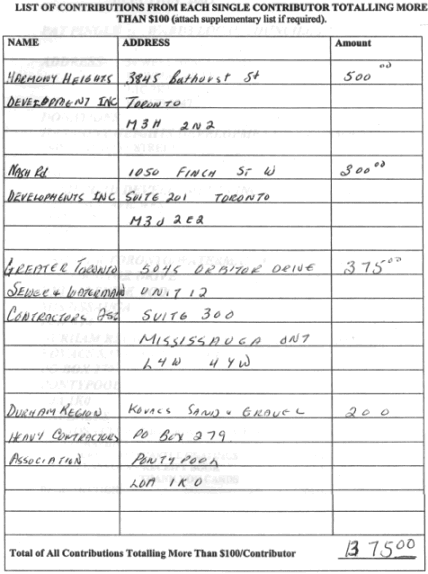 LIST OF CONTRIBUTIONS FROM EACH SINGLE CONTRIBUTOR TOTALLING MORE
THAN $100 (attach supplementary list if required).
NAME ADDRESS Amount
HARMONY HEIGHTS 3845 Bathurst St 500 00
DEVELOPMENT INC TORONTO
M3H 2N2
NASH Rd 1050 FINCH ST W 300 00
DEVELOPMENTS INC SUITE 201 TORONTO
M3J 2E2
GREATER TORONTO 5045 ORBITOR DRIVE 375 00
SEWER & WATERMAIN UNIT 12
CONTRACTORS SUITE 300
MISSISSAUGA ONT
L4W 4YW
DURHAM REGION KOVACS SAND & GRAVEL 200
HEAVY CONTRACTORS PO BOX 279
ASSOCIATION PONTYPOOL
LOA 1K0
Total of All Contributions Totalling More Than $100/Contributor 1375 00